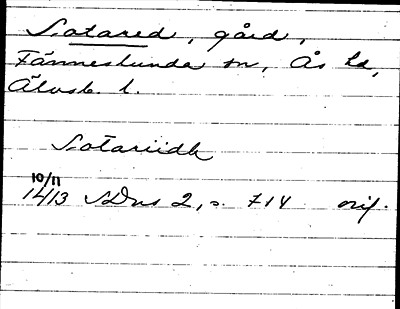 Slotared, gård,
Fänneslunda sn, Ås hd,
Älvsb. l.
Slotariidh
10/11
1413 SDns 2, s. 714 orig.